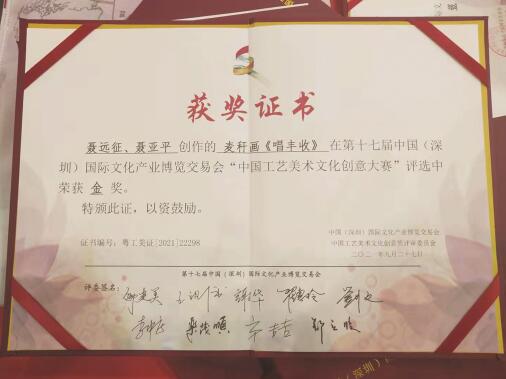 获奖证书
聂远征、聂亚平 创作的 麦秆画《唱丰收》 在第十七届中国（深
圳）国际文化产业博览交易会“中国工艺美术文化创意大赛”评选中
荣获 金 奖。
特颁此证，以资鼓励。
中国（深圳）国际文化产业博览交易会
证书编号：粤工美证[2021]22298
中国工艺美术文化创意奖评审委员会
二〇二一年九月二十七日
第十七届中国（深圳）国际文化产业博览交易会
评委签名：
（深圳）